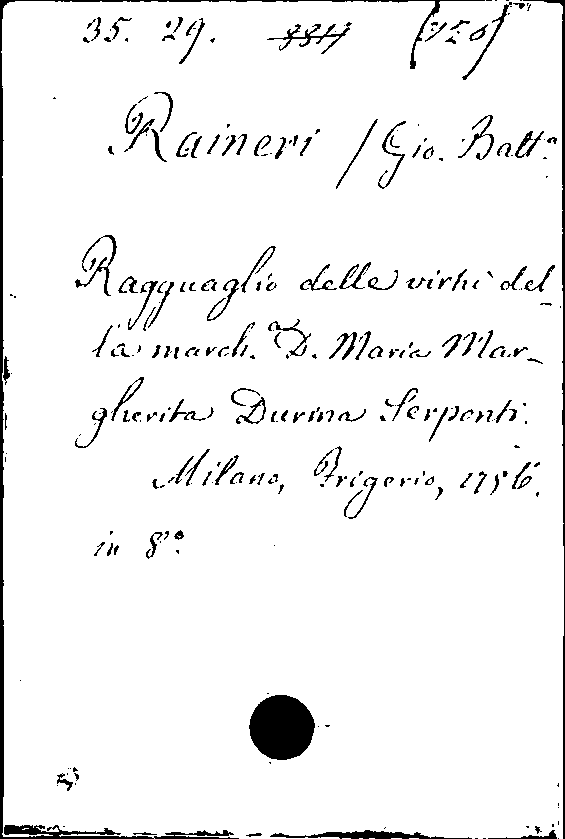 35. 29. 8817 (750)
Raineri / Gio. Batt.a
Ragguaglio delle virtù del-
la march.a D. Maria Mar-
gherita Durina Serponti.
Milano, Frigerio, 1756.
in 8.o